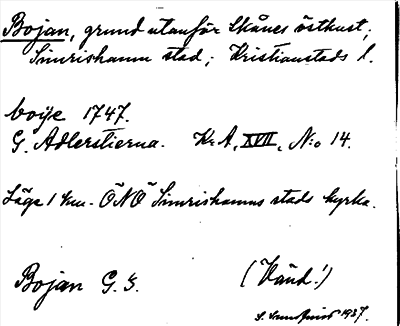 Bojan, grund utanför Skånes östkust;
Simrishamn stad; Kristianstads l.
boije 1747.
G. Adlerstierna. Kr. A, XVII, N:o 14.
Läge 1 km. ÖNÖ Simrishamns stads kyrka.
Bojan G. S. (Vänd!)
S. 1937.